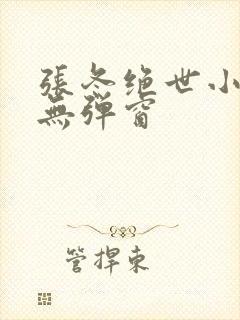 張冬绝世小
無弹窗
管捍東